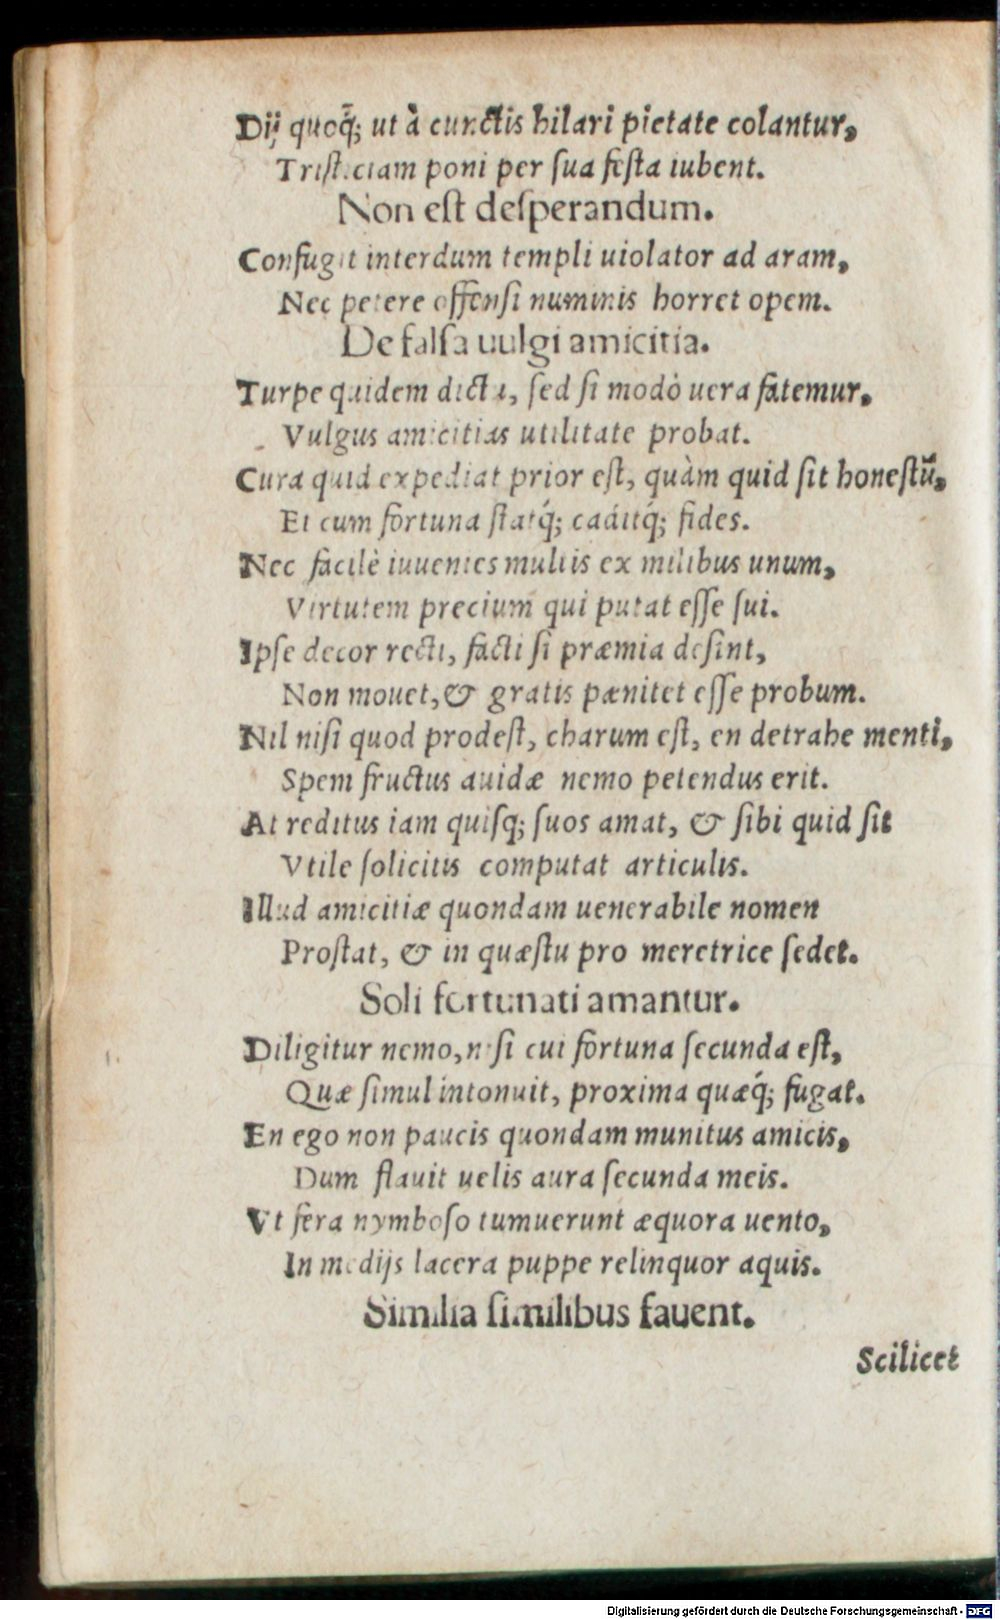 Dij quoq̃; ut à cunctis hilari pietate colantur,
Tristiciam poni per sua festa iubent.
Non est desperandum.
Confugit interdum templi uiolator ad aram,
Nec petere offensi numinis horret opem.
De falsa uulgi amicitia.
Turpe quidem dictu, sed si modò uera fatemur,
Vulgus amicitias utilitate probat.
Cura quid expediat prior est, quàm quid sit honestũ,
Et cum fortuna statq́; caditq́; fides.
Nec facilè inuenies multis ex milibus unum,
Virtutem precium qui putat esse sui.
Ipse decor recti, facti si præmia desint,
Non mouet, & gratis pænitet esse probum.
Nil nisi quod prodest, charum est, en detrahe menti,
Spem fructus auidæ nemo petendus erit.
At reditus iam quisq; suos amat, & sibi quid sit
Vtile solicitis computat articulis.
Illud amicitiæ quondam uenerabile nomen
Prostat, & in quæstu pro meretrice sedet.
Soli fortunati amantur.
Diligitur nemo, nisi cui fortuna secunda est,
Quæ simul intonuit, proxima quæq́; fugat.
En ego non paucis quondam munitus amicis,
Dum flauit uelis aura secunda meis.
Vt fera nymboso tumuerunt æquora uento,
In medijs lacera puppe relinquor aquis.
Similia similibus fauent.
Scilicet
Digitalisierung gefördert durch die Deutsche Forschungsgemeinschaft - DFG